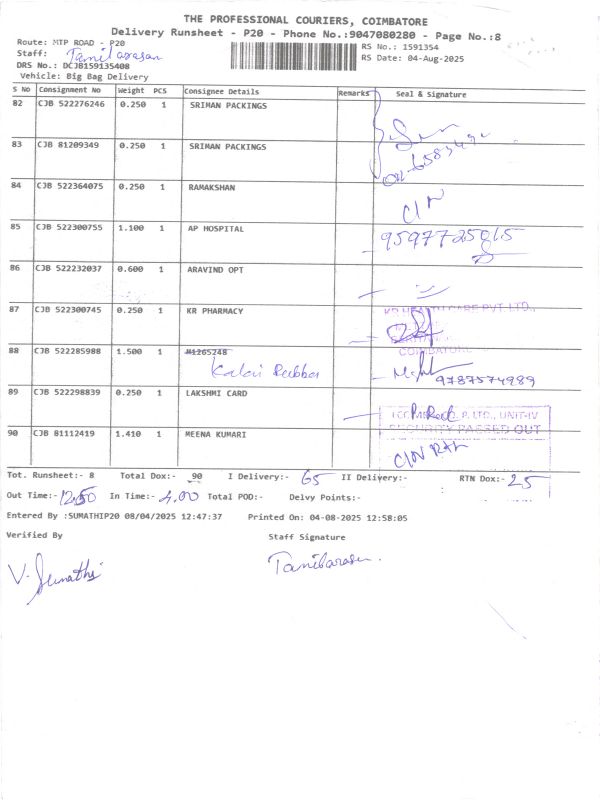 THE PROFESSIONAL COURIERS, COIMBATORE
Delivery Runsheet - P20 - Phone No.:9047080280 - Page No.:8
Route: MTP ROAD - P20
RS No.: 1591354
Staff: Tamilarasan
RS Date: 04-Aug-2025
DRS No.: DCJB159135408
Vehicle: Big Bag Delivery
S No Consignment No Weight PCS Consignee Details Remarks Seal & Signature
82 CJB 522276246 0.250 1 SRIMAN PACKINGS
83 CJB 81209349 0.250 1 SRIMAN PACKINGS
84 CJB 522364075 0.250 1 RAMAKSHAN
85 CJB 522300755 1.100 1 AP HOSPITAL 9597725015
86 CJB 522232037 0.600 1 ARAVIND OPT
87 CJB 522300745 0.250 1 KR PHARMACY
COIMBATORE
88 CJB 522285988 1.500 1 M1265248
Kalai Rubber 9787574989
89 CJB 522298839 0.250 1 LAKSHMI CARD
P. LTD., UNIT-IV
SECURITY PASSED OUT
90 CJB 81112419 1.410 1 MEENA KUMARI
Tot. Runsheet:- 8 Total Dox:- 90 I Delivery:- 65 II Delivery:- RTN Dox:- 25
Out Time:- 12.50 In Time:- 4.00 Total POD:- Delvy Points:-
Entered By :SUMATHIP20 08/04/2025 12:47:37 Printed On: 04-08-2025 12:58:05
Verified By Staff Signature
V. Sumathi Tamilarasan.